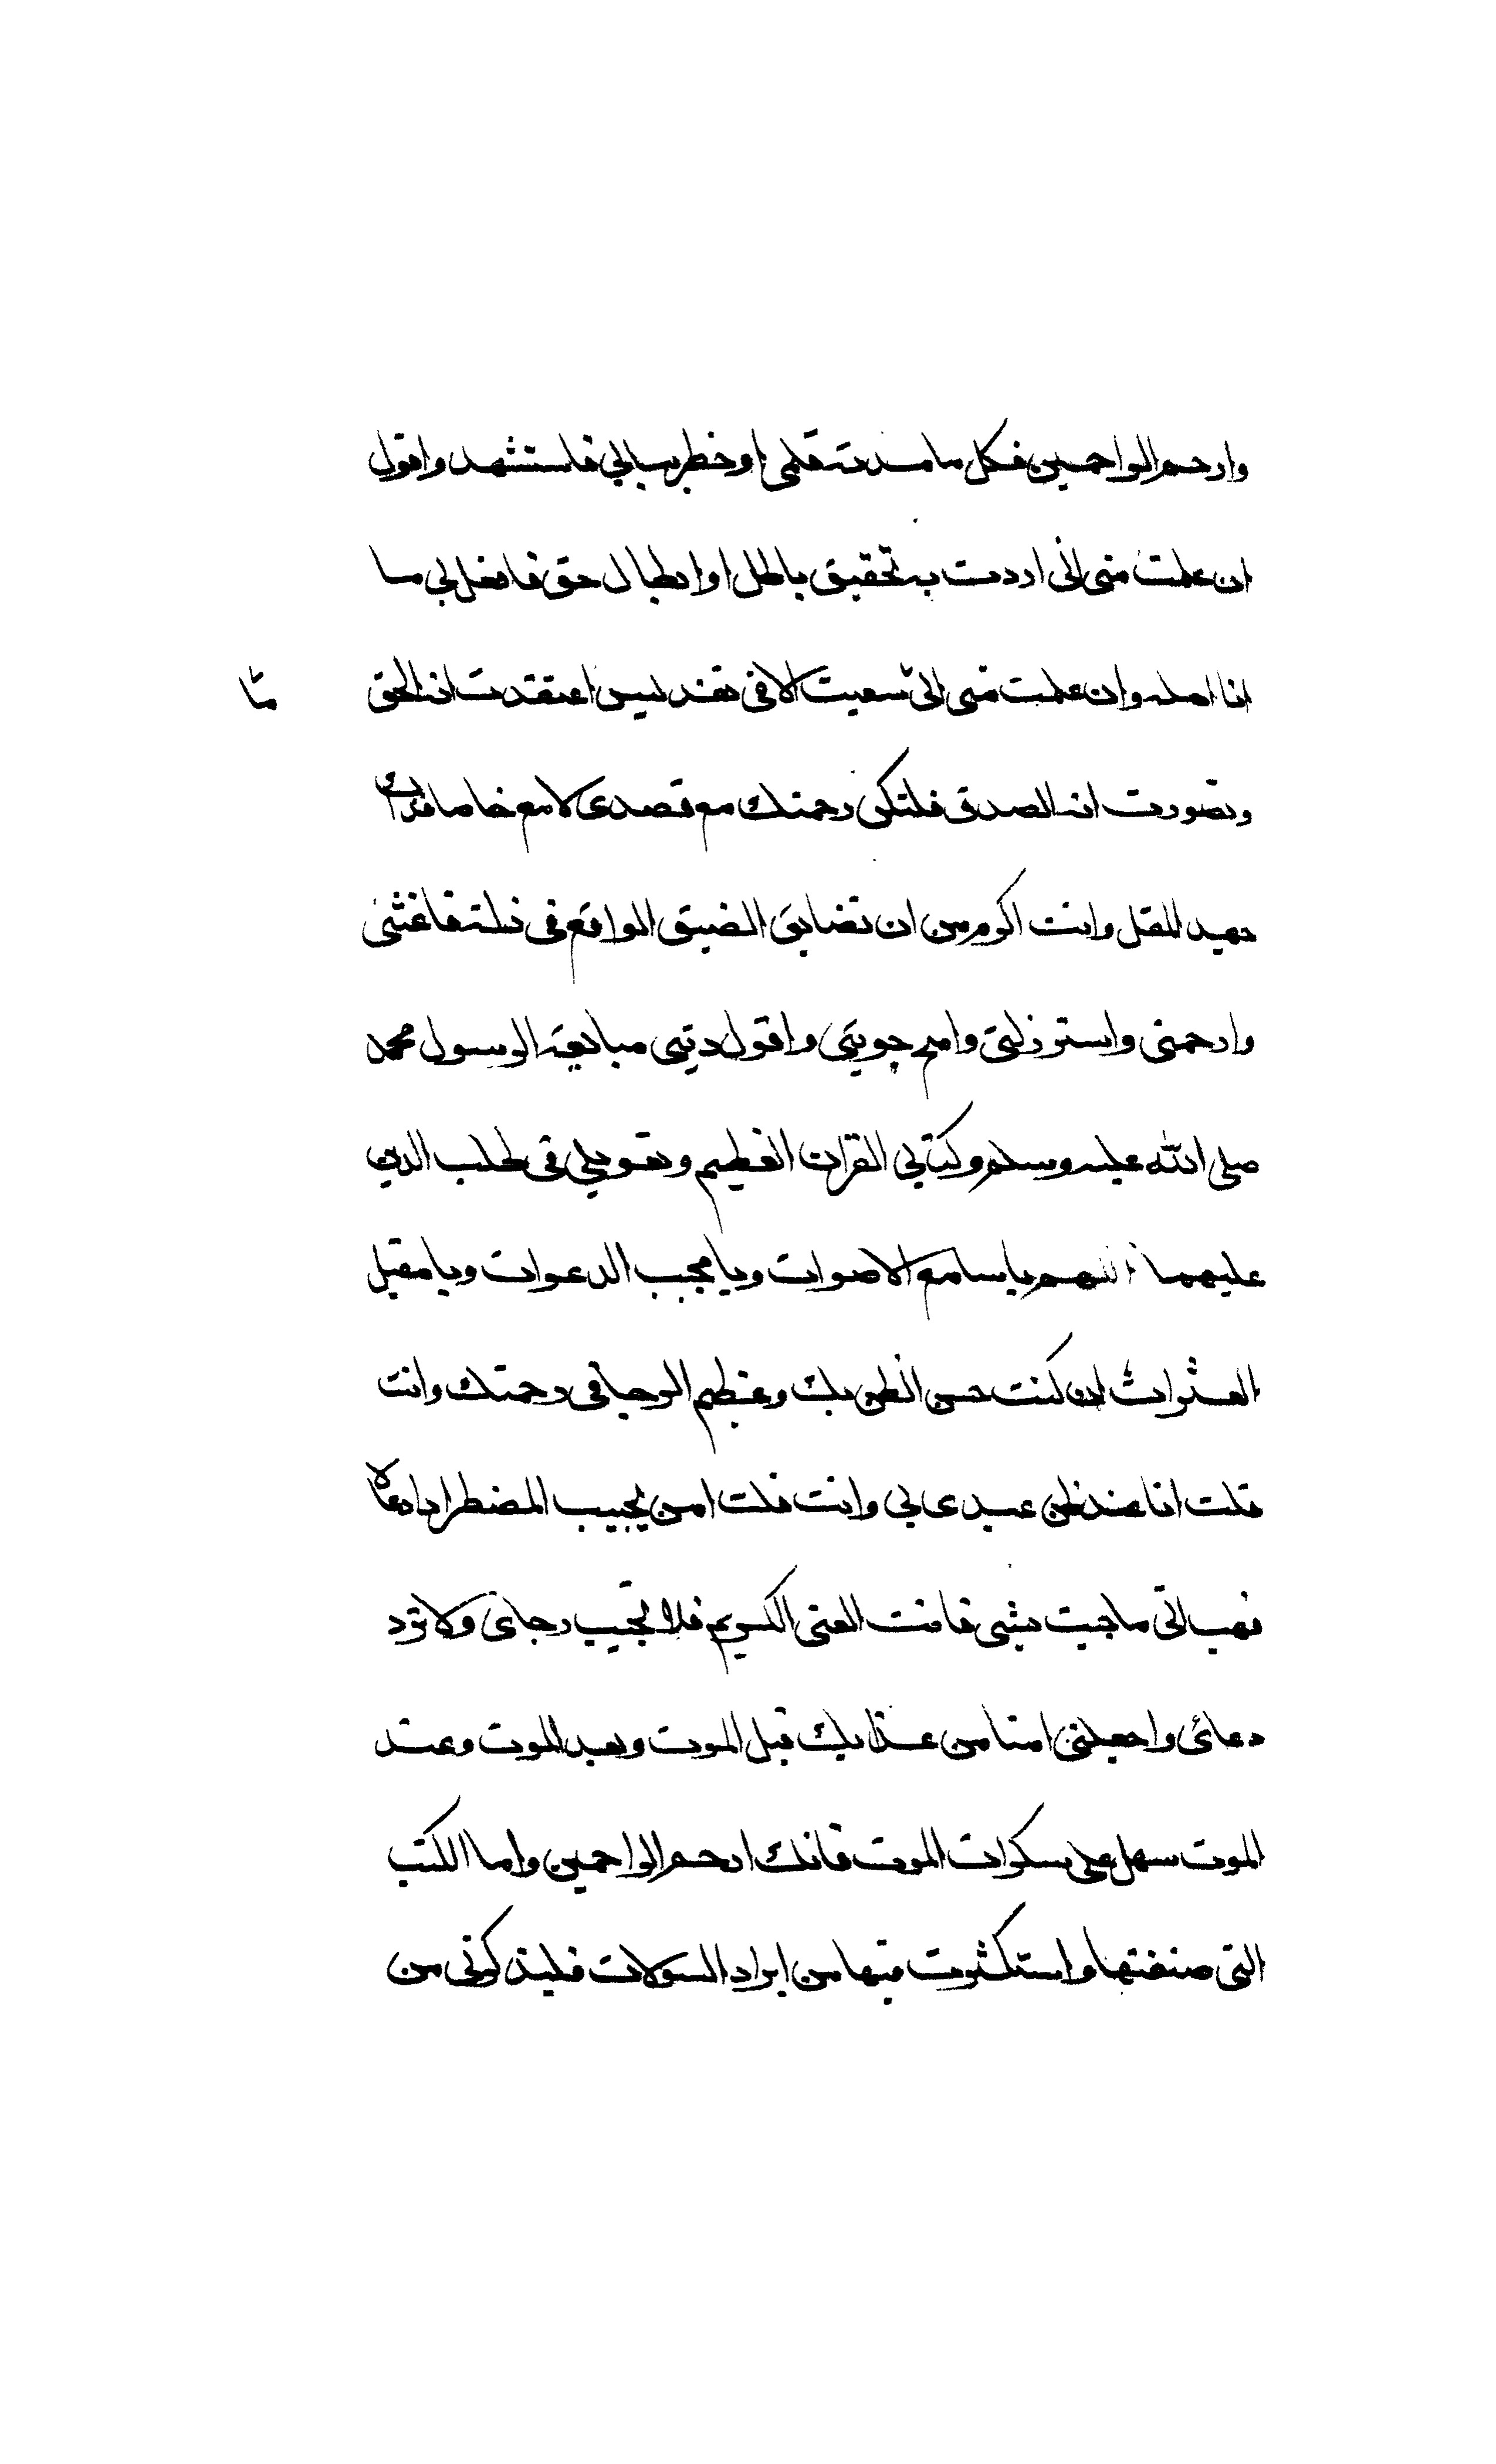 وارحم الراحمين فكل ما مدته قلمى او خطر ببالي فاستشهد واقول
ان علمت منى انى اردت به تحقيق باطل او ابطال حق فافعل بى ما
انا اهله وان علمت منى انى سعيت الا فى تقديس اعتقدت انه الحق
ما
وتصورت انه الصدق فلتكن رحمتك مع قصدى لا مع خاصا فذاك
جهد المقل وانت اكرم من ان تضايق الضيق الواقع فى ذلته فاغثنى
وارحمنى واستر زلتى وامح حوبتى واقول دينى متابعة الرسول محمد
صلى الله عليه وسلم وكتابى القران العظيم وتعويلى فى طلب الدين
عليهما اللهم يا سامع الاصوات ويا مجيب الدعوات ويا مقيل
العثرات ان كنت حسن الظن بك وعظيم الرجا فى رحمتك وانت
قلت انا عند ظن عبدى بى وانت قلت امن يجيب المضطر اذا دعاه
فهب انى ما جيت بشى فانت الغنى الكريم فلا تخيب رجاى ولا ترد
دعائى واجعلنى امنا من عذابك قبل الموت وبعد الموت وعند
الموت سهل على سكرات الموت فانك ارحم الراحمين واما الكتب
التى صنفتها واستكثرت فيها من ايراد السوالات فليذكرنى من